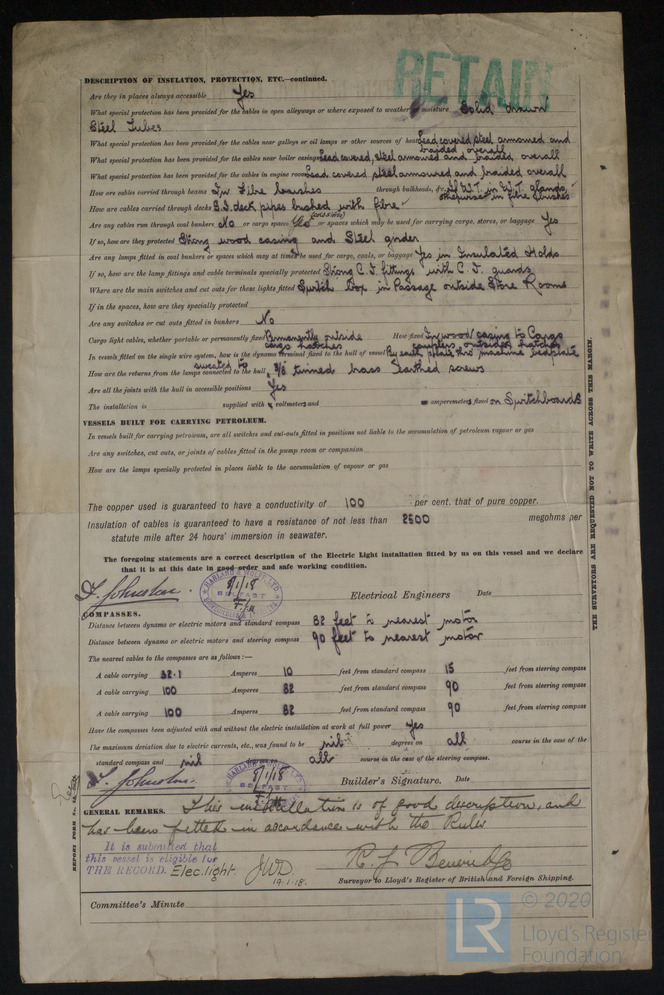 RETAIN
DESCRIPTION OF INSULATION, PROTECTION, ETC.—continued.
Are they in places always accessible Yes
What special protection has been provided for the cables in open alleyways or where exposed to weather or moisture Solid drawn
Steel Tubes
What special protection has been provided for the cables near galleys or oil lamps or other sources of heat Lead covered steel armoured and braided overall
What special protection has been provided for the cables near boiler casings Lead covered, steel armoured and braided overall
What special protection has been provided for the cables in engine room Lead covered steel armoured and braided overall
How are cables carried through beams In Fibre bushes through bulkheads, &c. If W.T. in W.T. glands, otherwise in fibre bushes
How are cables carried through decks deck pipes bushed with fibre
Are any cables run through coal bunkers No or cargo spaces Yes or spaces which may be used for carrying cargo, stores, or baggage Yes
If so, how are they protected Strong wood casing and Steel girder
Are any lamps fitted in coal bunkers or spaces which may at times be used for cargo, coals, or baggage Yes in Insulated Holds
If so, how are the lamp fittings and cable terminals specially protected Strong C.I. fittings with C.I. guards
Where are the main switches and cut outs for these lights fitted Switch Box in Passage outside Store Rooms
If in the spaces, how are they specially protected
Are any switches or cut outs fitted in bunkers No
Cargo light cables, whether portable or permanently fixed Permanently outside cargo hatches How fixed In wood casing to Cargo couplers outside hatches
In vessels fitted on the single wire system, how is the dynamo terminal fixed to the hull of vessel By earth plate thro' machine bedplate
How are the returns from the lamps connected to the hull sweated to 3/8 tinned brass Earthed screws
Are all the joints with the hull in accessible positions Yes
The installation is supplied with voltmeters and amperemeters, fixed on Switchboards
VESSELS BUILT FOR CARRYING PETROLEUM.
In vessels built for carrying petroleum, are all switches and cut-outs fitted in positions not liable to the accumulation of petroleum vapour or gas
Are any switches, cut outs, or joints of cables fitted in the pump room or companion
How are the lamps specially protected in places liable to the accumulation of vapour or gas
The copper used is guaranteed to have a conductivity of 100 per cent. that of pure copper.
Insulation of cables is guaranteed to have a resistance of not less than 2500 megohms per
statute mile after 24 hours' immersion in seawater.
The foregoing statements are a correct description of the Electric Light installation fitted by us on this vessel and we declare
that it is at this date in good order and safe working condition.
Johnston. HARLAND & WOLFF LTD BELFAST 8/1/18 Electrical Engineers Date
COMPASSES.
Distance between dynamo or electric motors and standard compass 82 feet to nearest motor
Distance between dynamo or electric motors and steering compass 90 feet to nearest motor
The nearest cables to the compasses are as follows:—
A cable carrying 32.1 Amperes 10 feet from standard compass 15 feet from steering compass
A cable carrying 100 Amperes 82 feet from standard compass 90 feet from steering compass
A cable carrying 100 Amperes 82 feet from standard compass 90 feet from steering compass
Have the compasses been adjusted with and without the electric installation at work at full power Yes
The maximum deviation due to electric currents, etc., was found to be nil degrees on all course in the case of the
standard compass and nil degrees on all course in the case of the steering compass.
Johnston. BELFAST 8/1/18 Builder's Signature. Date
GENERAL REMARKS. This installation is of good description, and
has been fitted in accordance with the Rules
It is submitted that
this vessel is eligible for
THE RECORD. Elec. light. JWD 19.1.18.
Surveyor to Lloyd's Register of British and Foreign Shipping.
Committee's Minute
THE SURVEYORS ARE REQUESTED NOT TO WRITE ACROSS THIS MARGIN.
LR © 2020
Lloyd's Register
Foundation